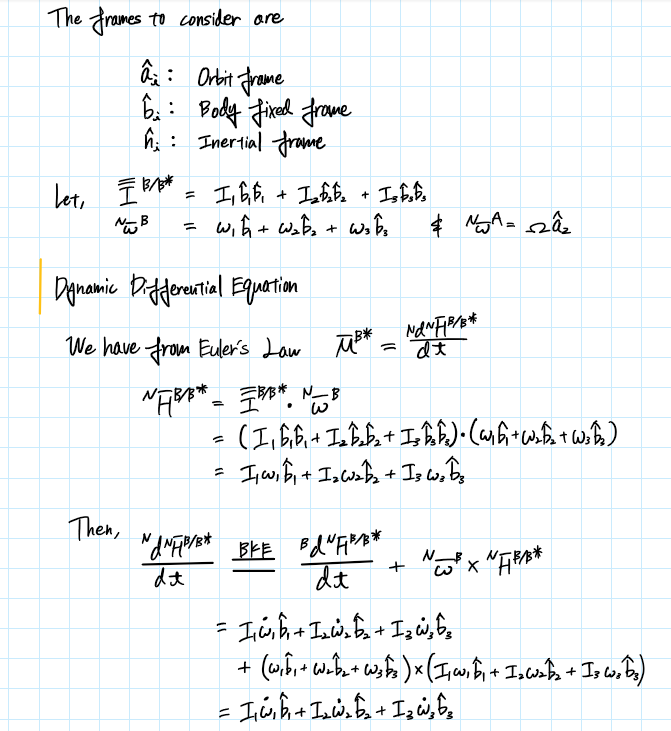 The frames to consider are
âᵢ : Orbit frame
b̂ᵢ : Body fixed frame
n̂ᵢ : Inertial frame
Let, I̿ᴮ/ᴮ* = I₁b̂₁b̂₁ + I₂b̂₂b̂₂ + I₃b̂₃b̂₃
ᴺω̄ᴮ = ω₁b̂₁ + ω₂b̂₂ + ω₃b̂₃ & ᴺω̄ᴬ = Ωâ₂
Dynamic Differential Equation
We have from Euler's Law M̄ᴮ* = ᴺdᴺH̄ᴮ/ᴮ* / dt
ᴺH̄ᴮ/ᴮ* = I̿ᴮ/ᴮ* · ᴺω̄ᴮ
= (I₁b̂₁b̂₁ + I₂b̂₂b̂₂ + I₃b̂₃b̂₃)·(ω₁b̂₁ + ω₂b̂₂ + ω₃b̂₃)
= I₁ω₁b̂₁ + I₂ω₂b̂₂ + I₃ω₃b̂₃
Then, ᴺdᴺH̄ᴮ/ᴮ* / dt BKE = ᴮdᴺH̄ᴮ/ᴮ* / dt + ᴺω̄ᴮ × ᴺH̄ᴮ/ᴮ*
= I₁ω̇₁b̂₁ + I₂ω̇₂b̂₂ + I₃ω̇₃b̂₃
+ (ω₁b̂₁ + ω₂b̂₂ + ω₃b̂₃)×(I₁ω₁b̂₁ + I₂ω₂b̂₂ + I₃ω₃b̂₃)
= I₁ω̇₁b̂₁ + I₂ω̇₂b̂₂ + I₃ω̇₃b̂₃